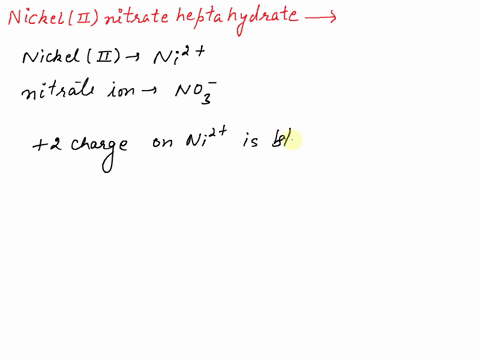 Nickel(II) nitrate heptahydrate →
Nickel(II) → Ni²⁺
nitrate ion → NO₃⁻
+2 charge on Ni²⁺ is